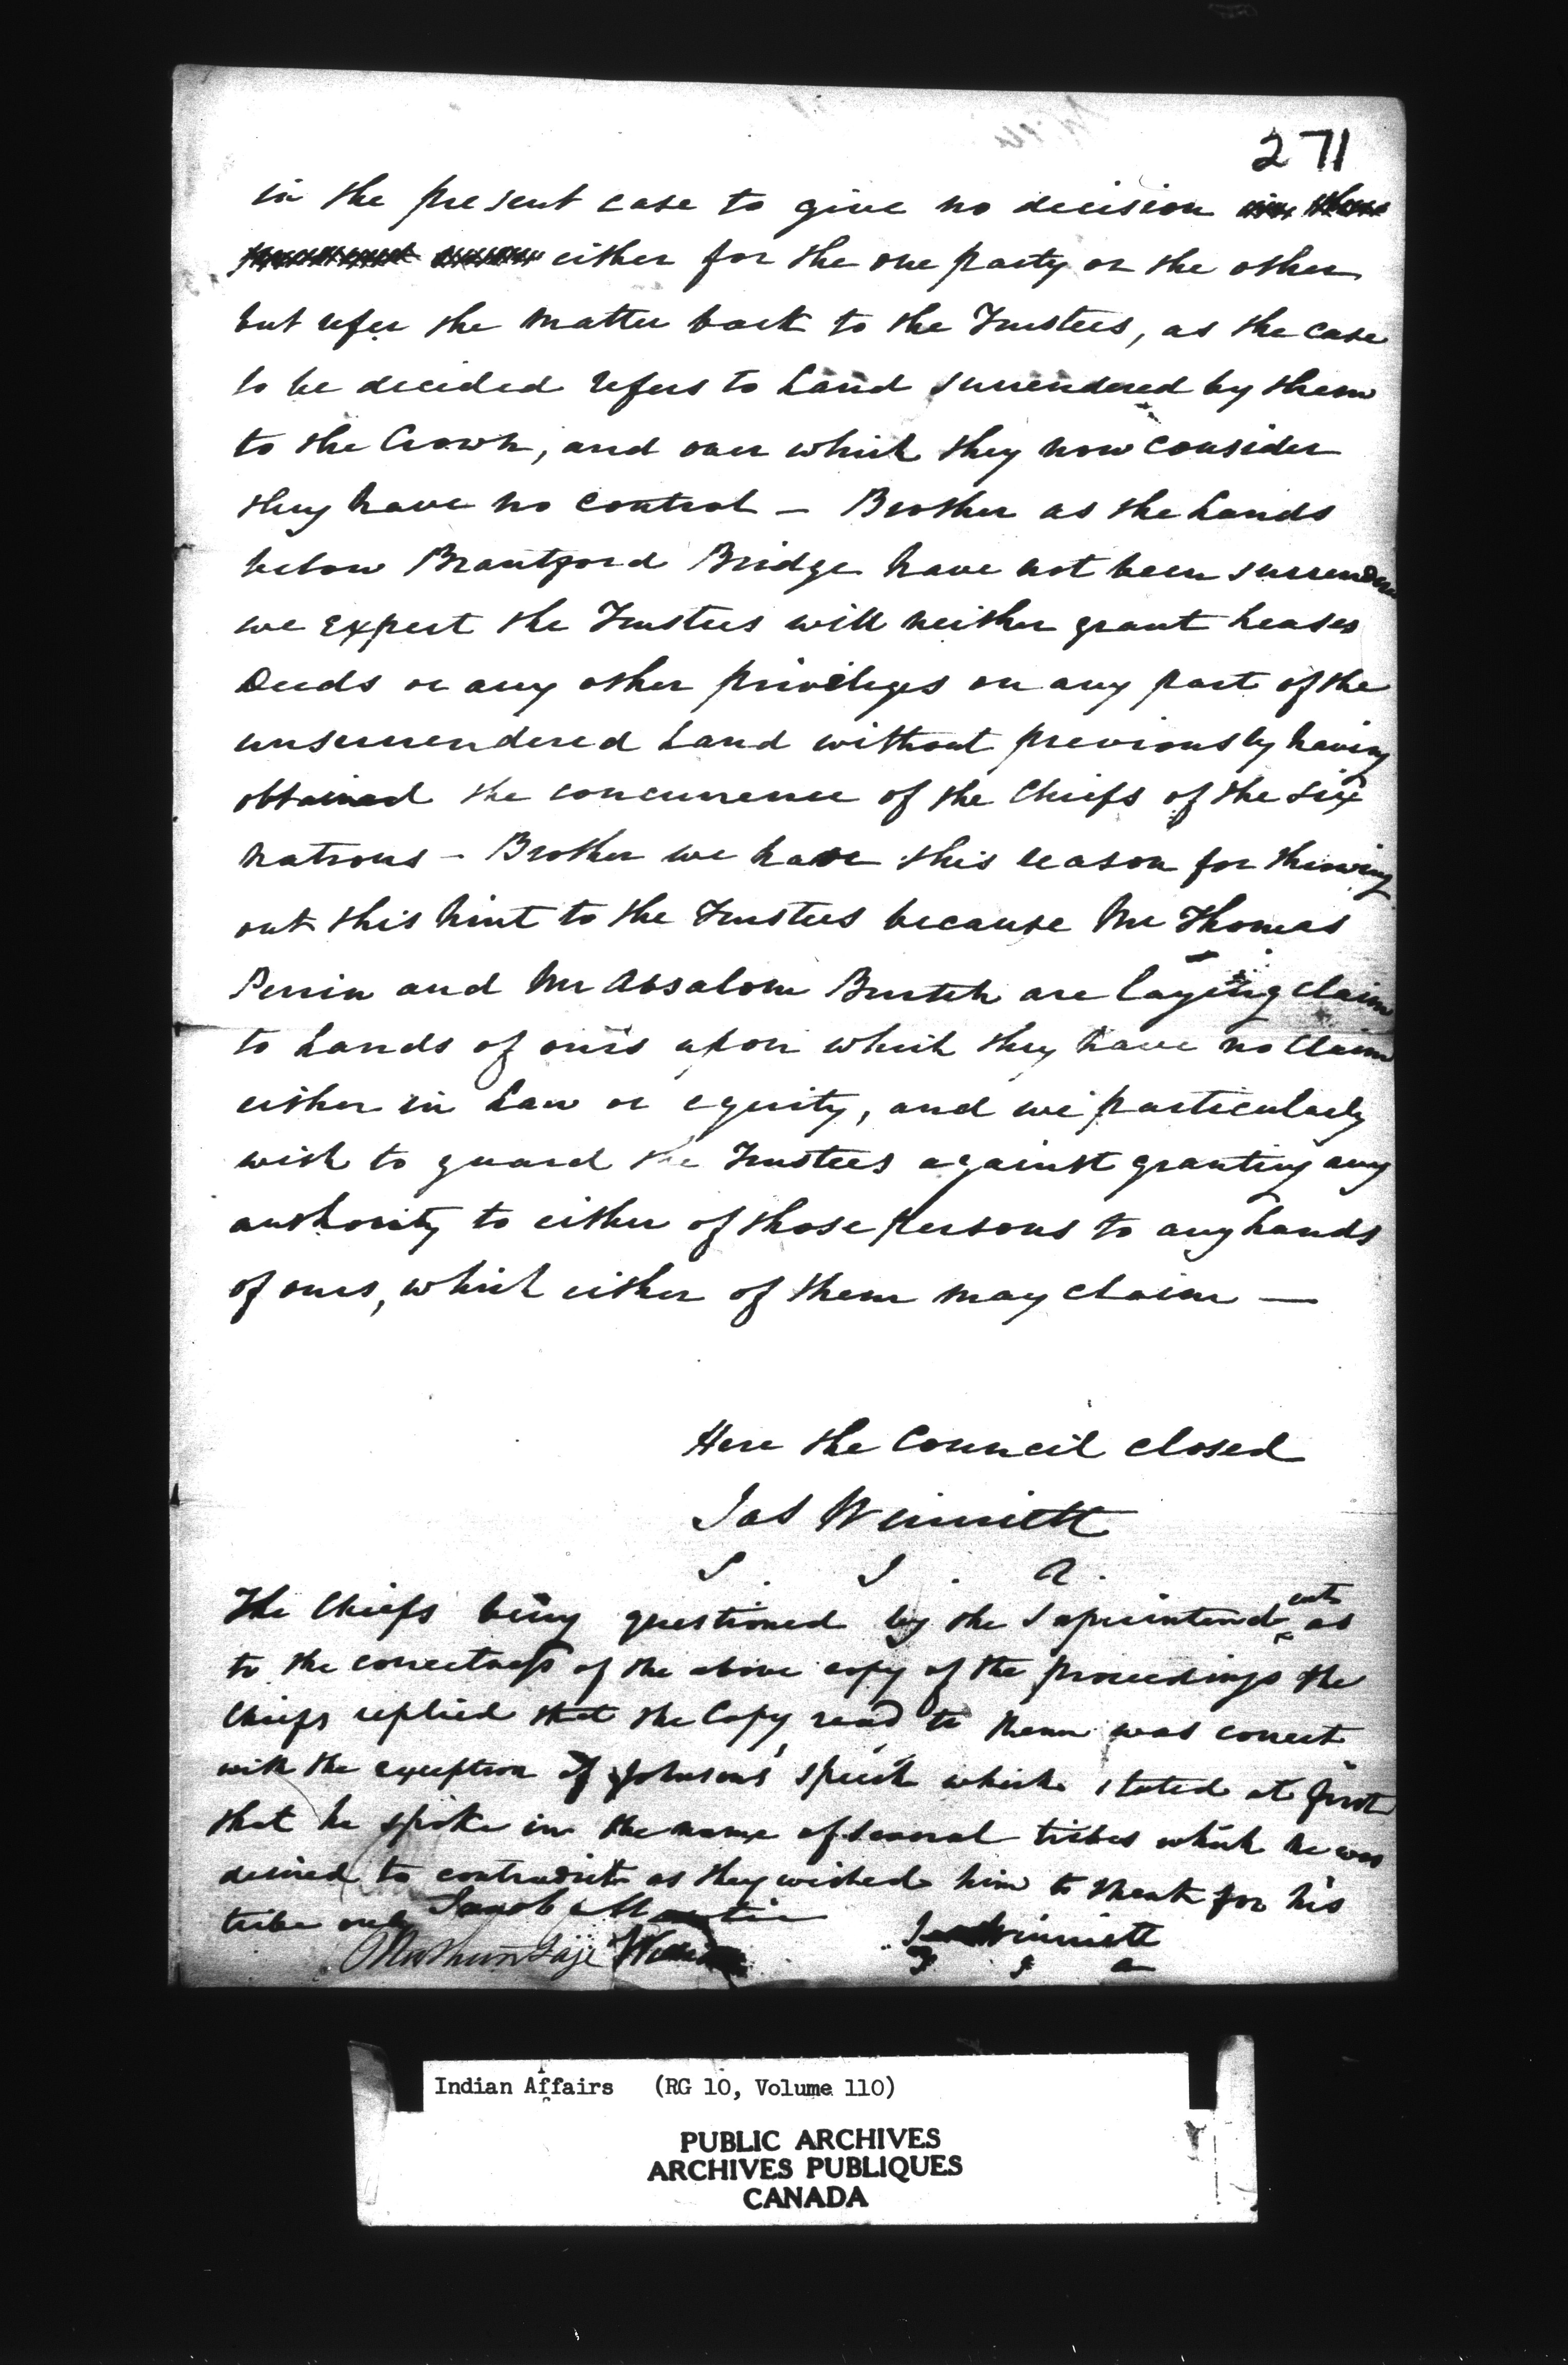 271
in the present case to give no decision
either for the one party or the other
but refer the matter back to the Trustees, as the case
to be decided refers to Land surrendered by them
to the Crown, and over which they now consider
they have no control – Brother as the Lands
below Brantford Bridge have not been surrendered
we expect the Trustees will neither grant Leases
Deeds or any other privileges on any part of the
unsurrendered Land without previously having
obtained the concurrence of the Chiefs of the Six
Nations – Brother we have this reason for throwing
out this hint to the Trustees because Mr Thomas
Perrin and Mr Absalom Burtch are laying claim
to Lands of ours upon which they have no Claim
either in Law or equity, and we particularly
wish to guard the Trustees against granting any
authority to either of those persons to any Lands
of ours, which either of them may claim —
Here the Council closed
Jas Winniett
S. I. A.
The Chiefs being questioned by the Superintendent as
to the correctness of the above copy of the proceedings the
Chiefs replied that the Copy read to them was correct
with the exception of Johnson's speech which stated at first
that he spoke in the name of several tribes which he was
desired to contradict as they wished him to speak for his
tribe only
Jacob Martin
Jas Winniett
S I A
Indian Affairs (RG 10, Volume 110)
PUBLIC ARCHIVES
ARCHIVES PUBLIQUES
CANADA